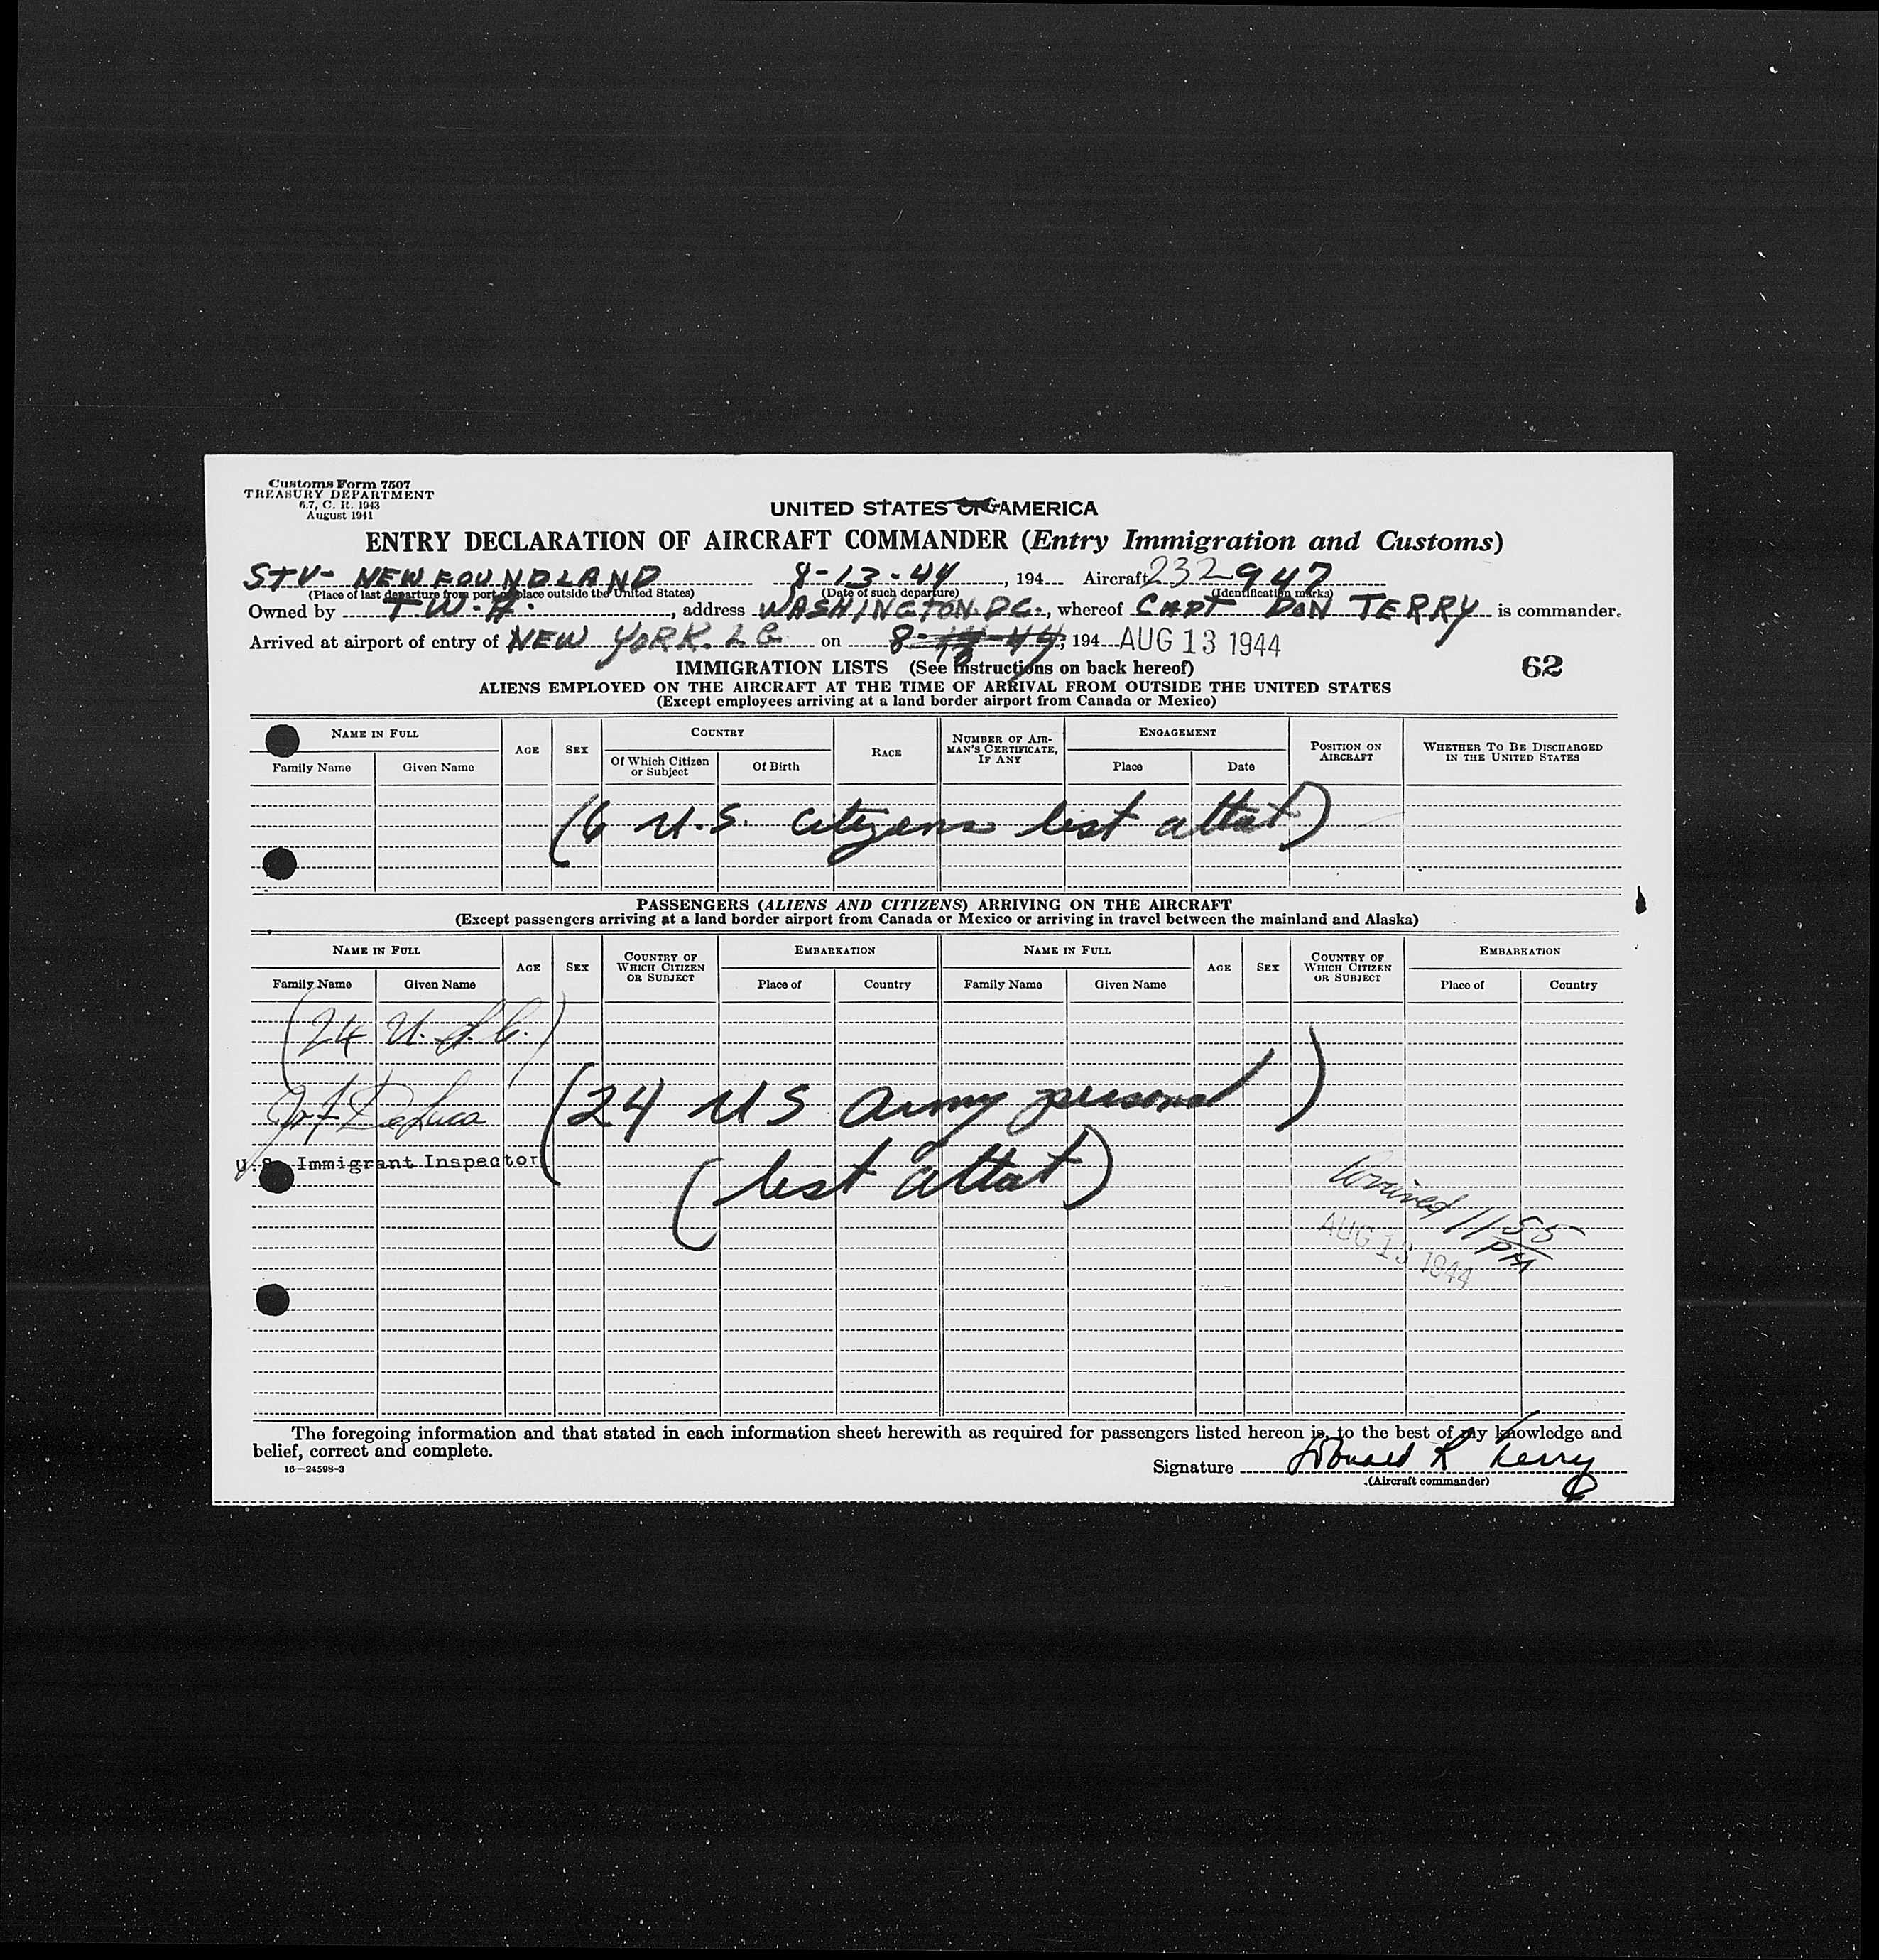 Customs Form 7507
TREASURY DEPARTMENT
6.7, C. R. 1943
August 1941
UNITED STATES OF AMERICA
ENTRY DECLARATION OF AIRCRAFT COMMANDER (Entry Immigration and Customs)
STV- NEWFOUNDLAND 8-13-44, 194 Aircraft 232947
(Place of last departure from port or place outside the United States) (Date of such departure) (Identification marks)
Owned by T.W.A., address WASHINGTON. DC., whereof CAPT DON TERRY is commander.
Arrived at airport of entry of NEW YORK. LG on 8- -44, 194 AUG 13 1944
IMMIGRATION LISTS (See instructions on back hereof)
62
ALIENS EMPLOYED ON THE AIRCRAFT AT THE TIME OF ARRIVAL FROM OUTSIDE THE UNITED STATES
(Except employees arriving at a land border airport from Canada or Mexico)
NAME IN FULL AGE SEX COUNTRY RACE NUMBER OF AIRMAN'S CERTIFICATE, IF ANY ENGAGEMENT POSITION ON AIRCRAFT WHETHER TO BE DISCHARGED IN THE UNITED STATES
Family Name Given Name Of Which Citizen or Subject Of Birth Place Date
(6 U.S. citizens list attat)
PASSENGERS (ALIENS AND CITIZENS) ARRIVING ON THE AIRCRAFT
(Except passengers arriving at a land border airport from Canada or Mexico or arriving in travel between the mainland and Alaska)
NAME IN FULL AGE SEX COUNTRY OF WHICH CITIZEN OR SUBJECT EMBARKATION NAME IN FULL AGE SEX COUNTRY OF WHICH CITIZEN OR SUBJECT EMBARKATION
Family Name Given Name Place of Country Family Name Given Name Place of Country
(24 U.S.C.)
DeLuca
(24 US Army personal)
U.S. Immigrant Inspector
(list attat)
Arrived 11 55 PM
AUG 13 1944
The foregoing information and that stated in each information sheet herewith as required for passengers listed hereon is, to the best of my knowledge and
belief, correct and complete.
16—24598-3
Signature Donald R Terry
(Aircraft commander)